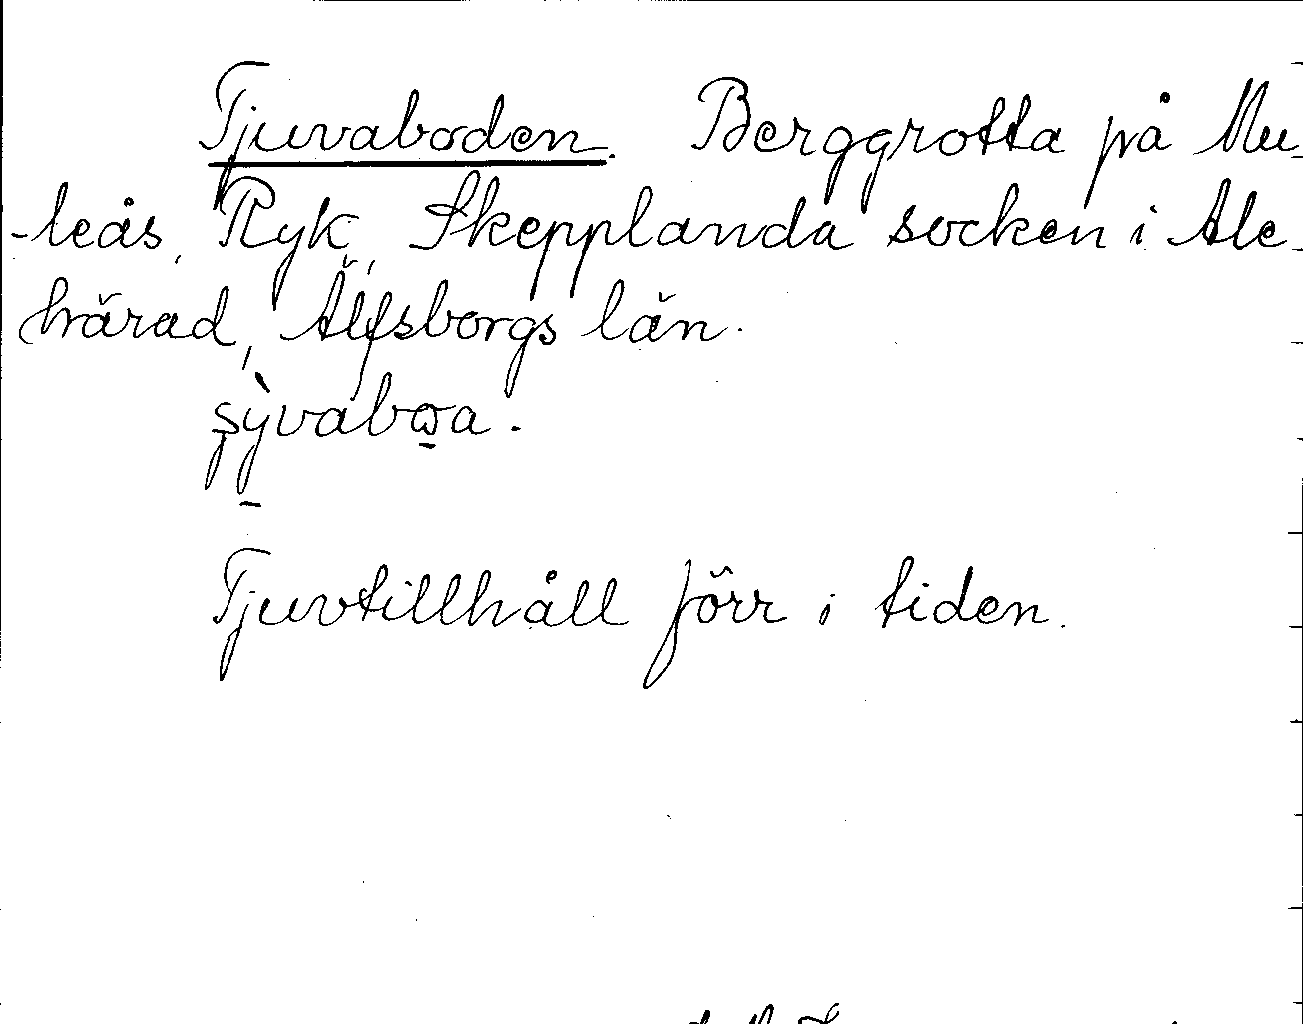 Tjuvaboden. Berggrotta på Mu-
-leås, Ryk, Skepplanda socken i Ale-
härad, Älfsborgs län.
Tjuvtillhåll förr i tiden.